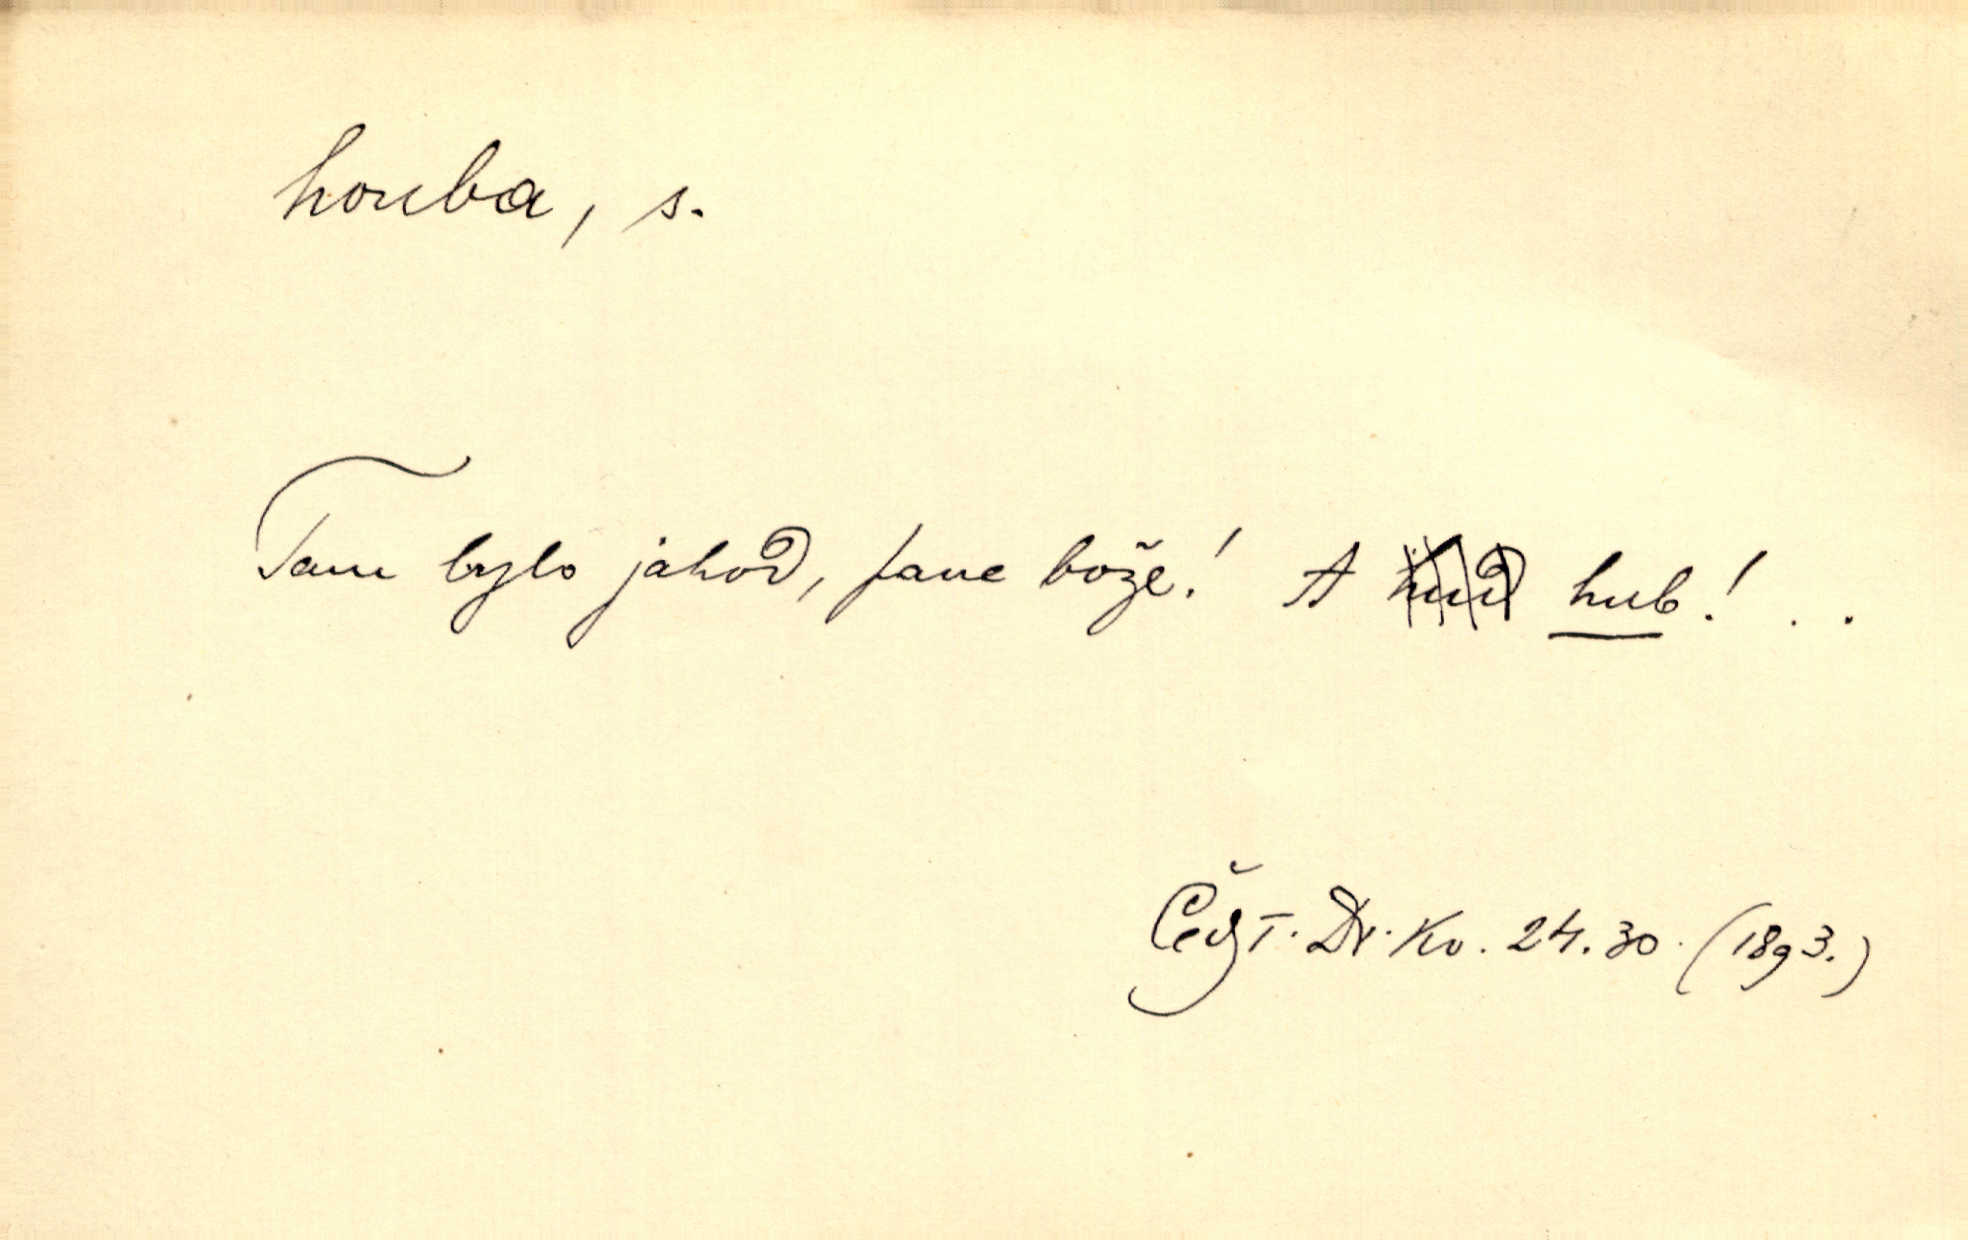 houba, s.
Tam bylo jahod, pane bože! A hub! . .
Čech T. Dr. Kv. 24.30. (1893.)